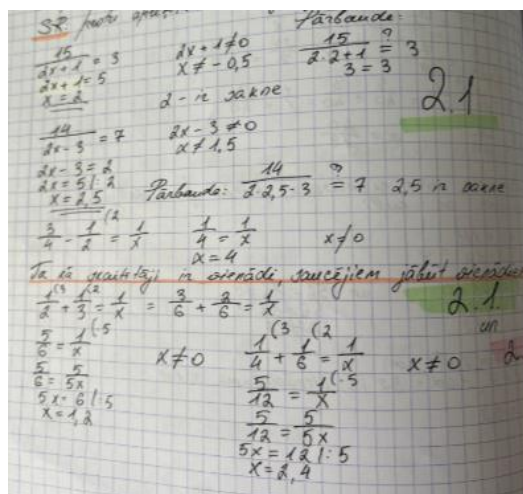 SR.
Pārbaude:
15/(2x+1) = 3
2x+1 = 5
x = 2
2x+1 ≠ 0
x ≠ -0,5
15/(2·2+1) ?= 3
3 = 3
2 - ir sakne
2.1
14/(2x-3) = 7
2x-3 ≠ 0
x ≠ 1,5
2x-3 = 2
2x = 5 |:2
x = 2,5
Pārbaude: 14/(2·2,5-3) ?= 7 2,5 ir sakne
3/4 - 1/2 (2 = 1/x
1/4 = 1/x
x = 4
x ≠ 0
Tā kā skaitītāji ir vienādi, saucējiem jābūt vienādiem
1/2 (3 + 1/3 (2 = 1/x = 3/6 + 2/6 = 1/x
2.1.
un
2
5/6 = 1/x (·5
5/6 = 5/5x
5x = 6 |:5
x = 1,2
x ≠ 0
1/4 (3 + 1/6 (2 = 1/x
x ≠ 0
5/12 = 1/x (·5
5/12 = 5/5x
5x = 12 |:5
x = 2,4